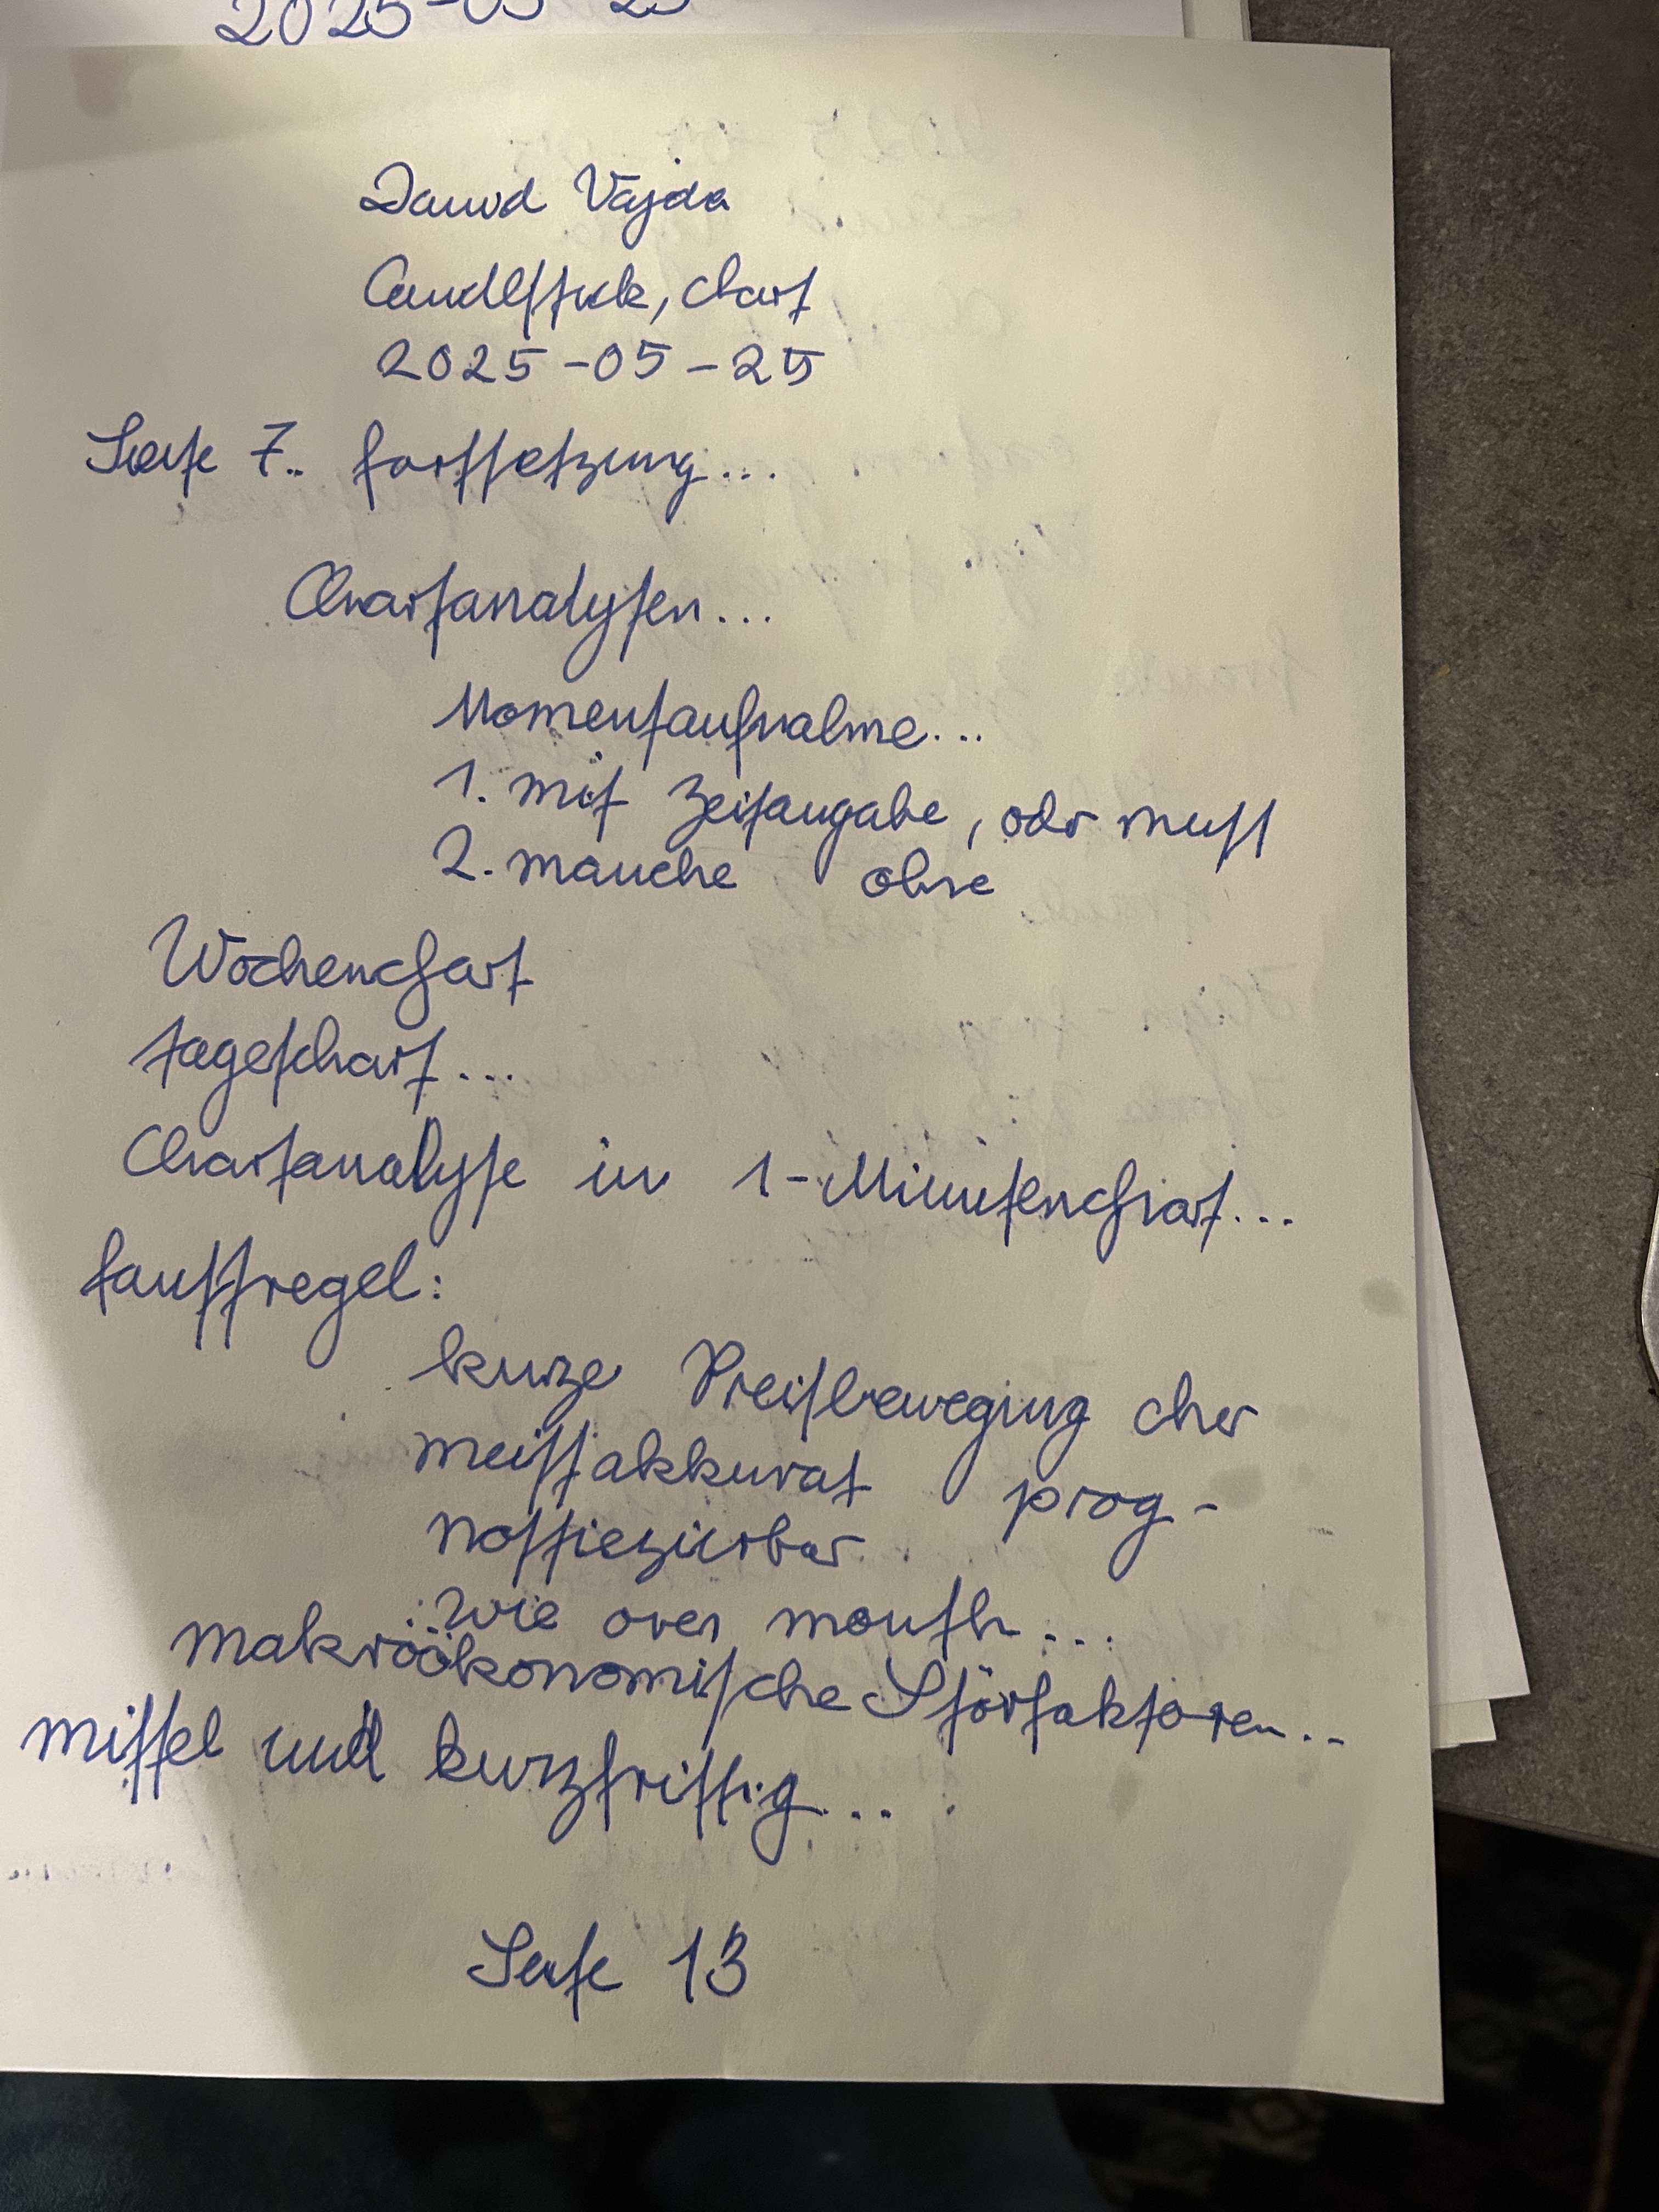 2025-05-25
David Vajda
Candlstick, Chart
2025-05-25
Seite 7.. fortsetzung...
Chartanalysen...
Momentaufnahme...
1. mit Zeitangabe, oder musst
2. manche ohne
Wochenchart
tageschart...
Chartanalyse in 1-Minutenchart...
faustregel:
kurze Preisbewegung eher
meist akkurat prog-
nostiezierbar
wie over month...
makroökonomische Störfaktoren...
mittel und kurzfristig...
Seite 13